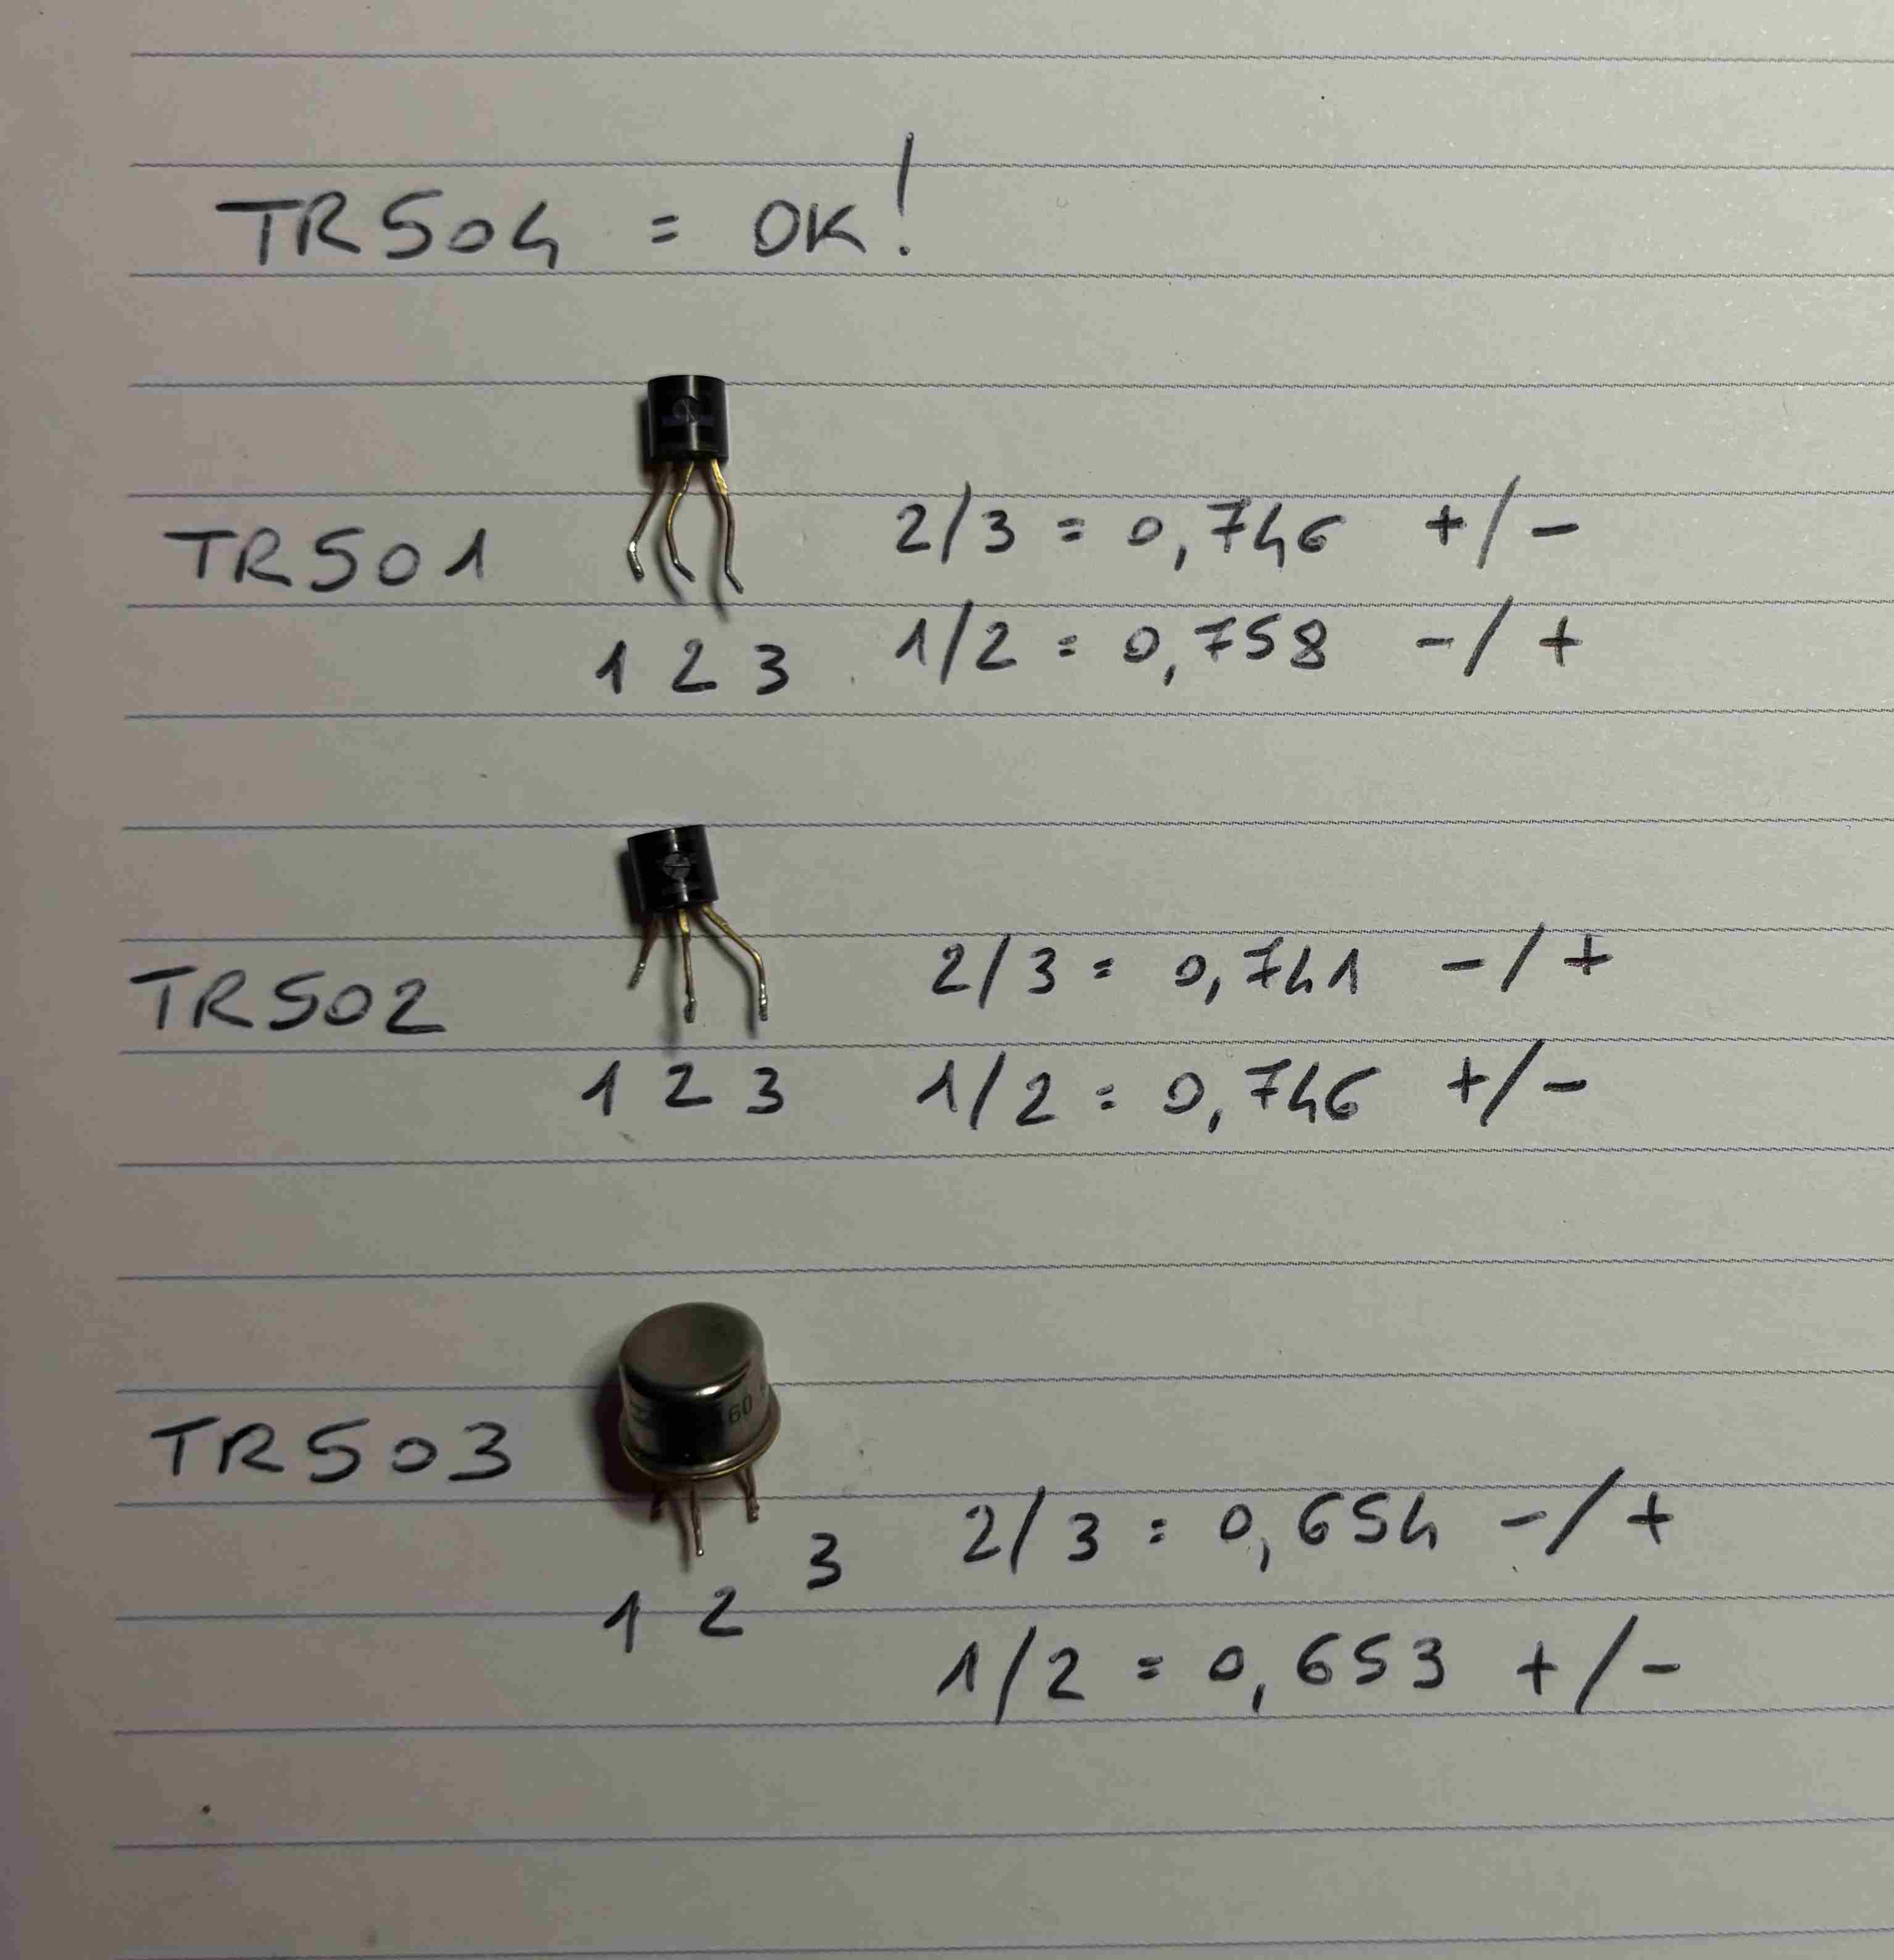 TR504 = OK!
TR501
2/3 = 0,746 +/-
1/2 = 0,758 -/+
1 2 3
TR502
2/3 = 0,741 -/+
1/2 = 0,746 +/-
1 2 3
60
TR503
2/3 = 0,654 -/+
1/2 = 0,653 +/-
1 2 3